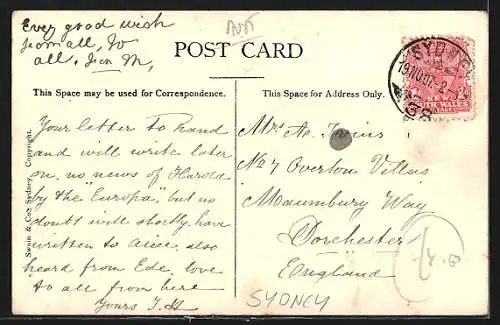 Every good wish
from all, to
all.
AUS
POST CARD
SYDNEY
NEW
SOUTH WALES
This Space may be used for Correspondence.
This Space for Address Only.
Your letter to hand
and will write later
on. no news of Harold
by the "Europa", but no
doubt will shortly. have
written to also
heard from Ede. love
to all from here
Yours
Swain & Co: Sydney. Copyright.
Mrs
No 7 Overton Villas
Maumbury Way
Dorchester
England
SYDNEY